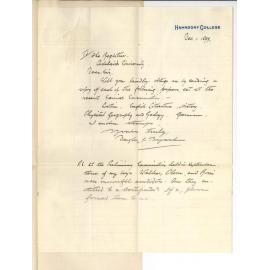 HAHNDORF COLLEGE
Dec. 1. 
To the Registrar
Adelaide University
Dear Sir,
Will you kindly oblige me by sending a
copy of each of the following papers set at the
recent Examination
Latin English Literature History
Physical Geography and Geology German
I enclose stamps
Yours truly
P.S. At the Preliminary Examination held in September
three of my boys and
were successful candidates. Are they en-
titled to a certificate? If so, please
forward them to me.